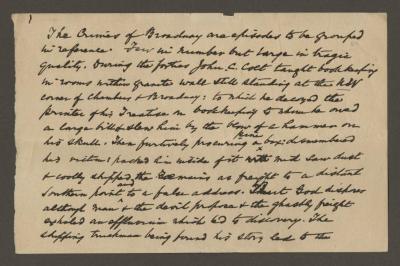 1
The Crimes of Broadway are episodes to be grouped
in reference. Few in number but large in tragic
quality. During the forties John. C. Colt taught bookkeeping
in rooms within granite wall still standing at the NW
corner of Chambers & Broadway: to which he decoyed the
printer of his Treatise on bookkeeping to whom he owed
a large bill & slew him by the blow of a hammer on
his skull. Then furtively procuring a box; dismembered
his victim: packed him inside of it with saw dust
& coolly shipped the remains as freight to a distant
Southern point and to a false address. But God disposes
although man & the devil propose & the ghastly freight
exhaled an effluvia which led to discovery. The
shipping truckman being found his story led to the